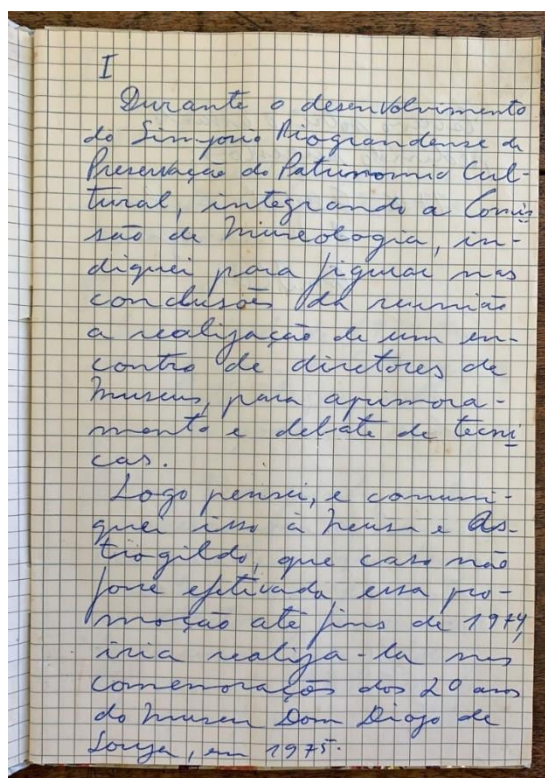 I
Durante o desenvolvimento
do Simposio Riograndense de
Preservação do Patrimonio Cul-
tural, integrando a Comis
são de Museologia, in-
diquei para figurar nas
conclusões da reunião
a realização de um en-
contro de diretores de
Museus, para aprimora-
mento e debate de tecni
cas.
Logo pensei, e comuni-
quei isso à Neusa e As-
trogildo, que caso não
fosse efetivada essa pro-
moção até fins de 1974,
iria realiza-la nas
comemorações dos 20 anos
do Museu Dom Diogo de
Souza, em 1975.